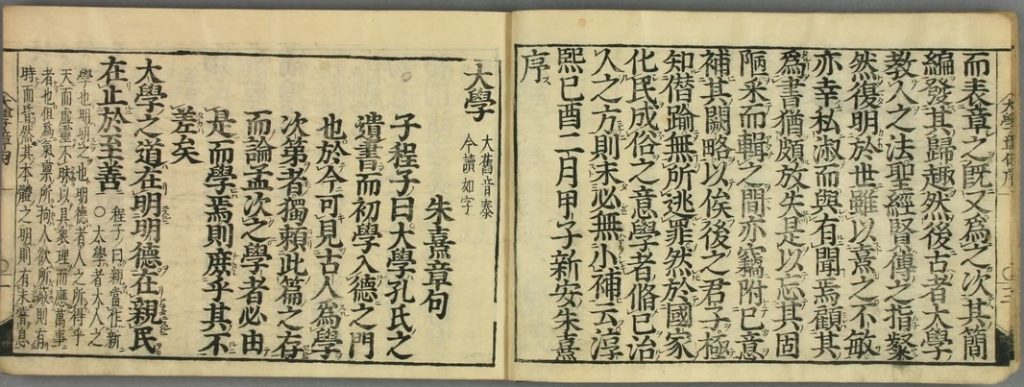 而表章之既又爲之次其簡
編發其歸趣然後古者大學
教人之法聖經賢傳之指粲
然復明於世雖以熹之不敏
亦幸私淑而與有聞焉顧其
爲書猶頗放失是以忘其固
陋采而輯之間亦竊附已意
補其闕略以俟後之君子極
知僭踰無所逃罪然於國家
化民成俗之意學者脩已治
人之方則未必無小補云淳
熙已酉二月甲子新安朱熹
序
大學
大舊音泰
今讀如字
朱熹章句
子程子曰大學孔氏之
遺書而初學入德之門
也於今可見古人爲學
次第者獨賴此篇之存
而論孟次之學者必由
是而學焉則庶乎其不
差矣
大學之道在明明德在親民
在止於至善
程子曰親當作新
○大學者大人之
學也明明之也明德者人之所得乎
天而虛靈不昧以具衆理而應萬事
者也但爲氣禀所拘人欲所蔽則有
時而昏然其本體之明則有未嘗息